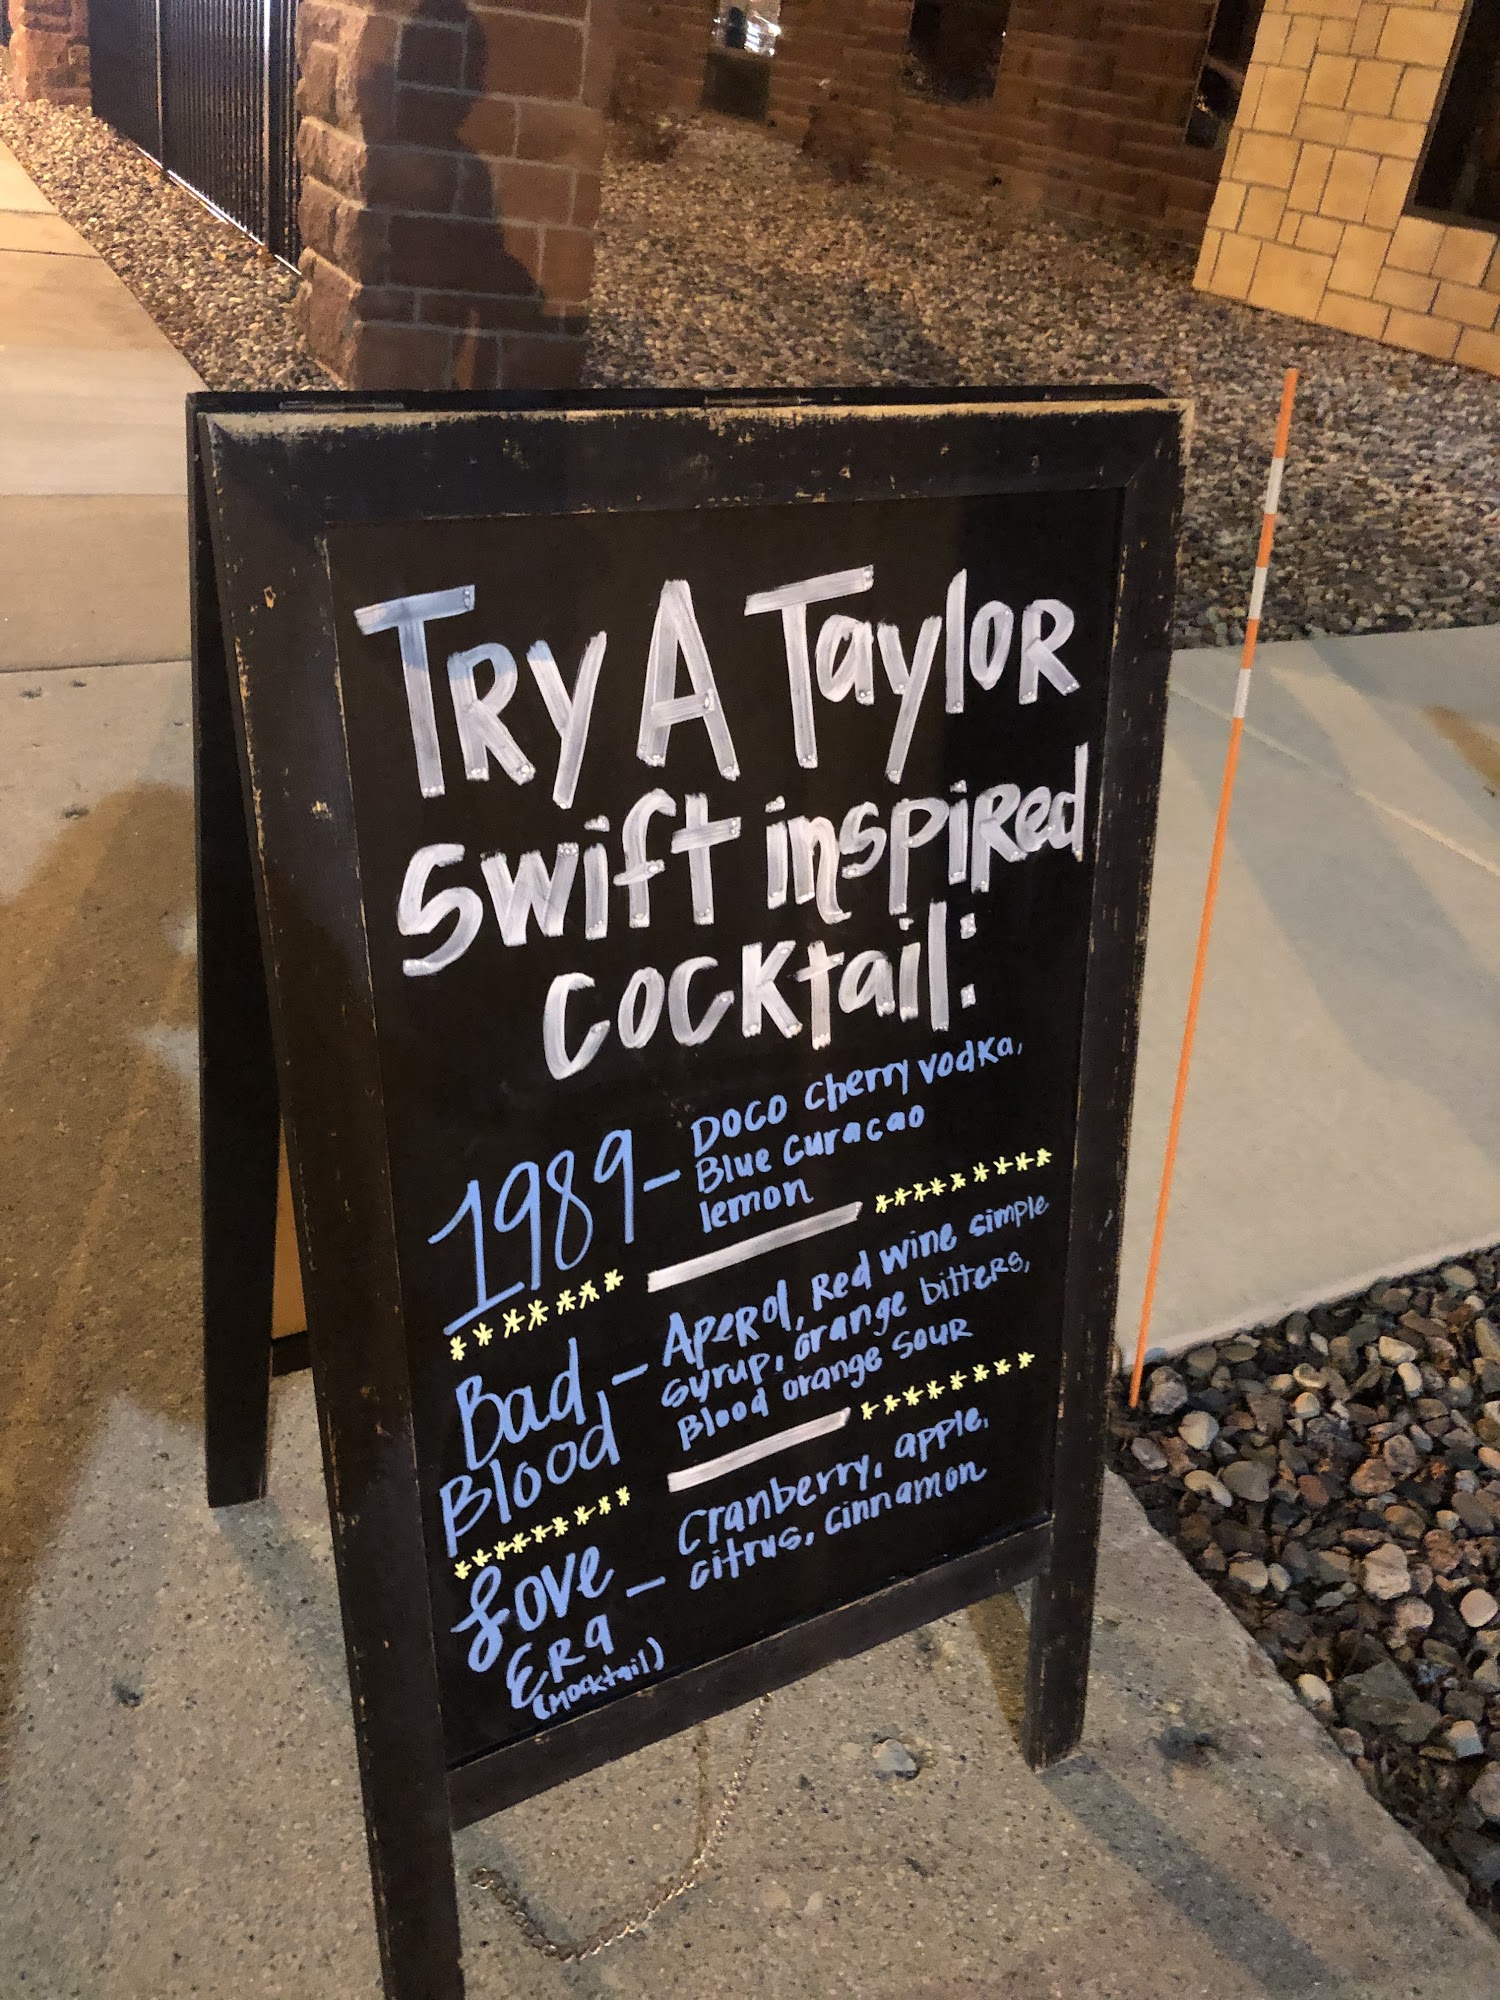 Try A Taylor
Swift inspired
cocktail:
1989 - DOCO cherry vodka,
Blue curacao
lemon
******* *********
Bad Blood - Aperol, Red wine simple
syrup, orange bitters,
Blood orange sour
******* ********
Love ERA (mocktail) - Cranberry, apple,
citrus, cinnamon